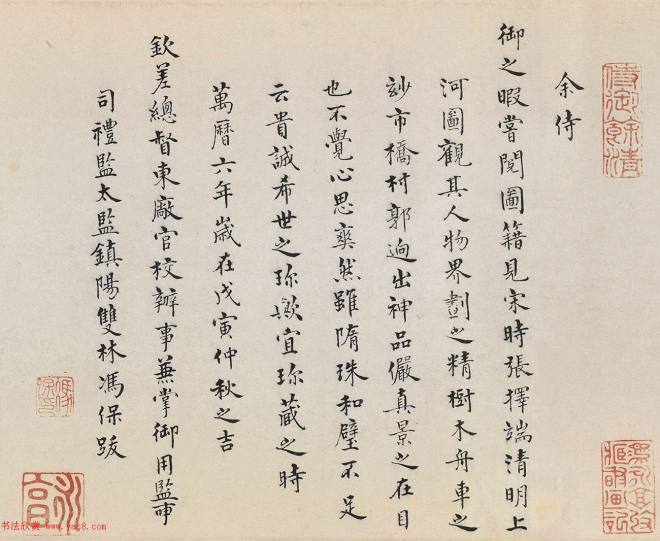 余侍
御之暇嘗閱圖籍見宋時張擇端清明上
河圖觀其人物界劃之精樹木舟車之
玅市橋村郭迥出神品儼真景之在目
也不覺心思爽然雖隋珠和璧不足
云貴誠希世之珎歟宜珎藏之時
萬曆六年歲在戊寅仲秋之吉
欽差總督東廠官校辦事兼掌御用監事
司禮監太監鎮陽雙林馮保跋
书法欣赏 www.yac8.com